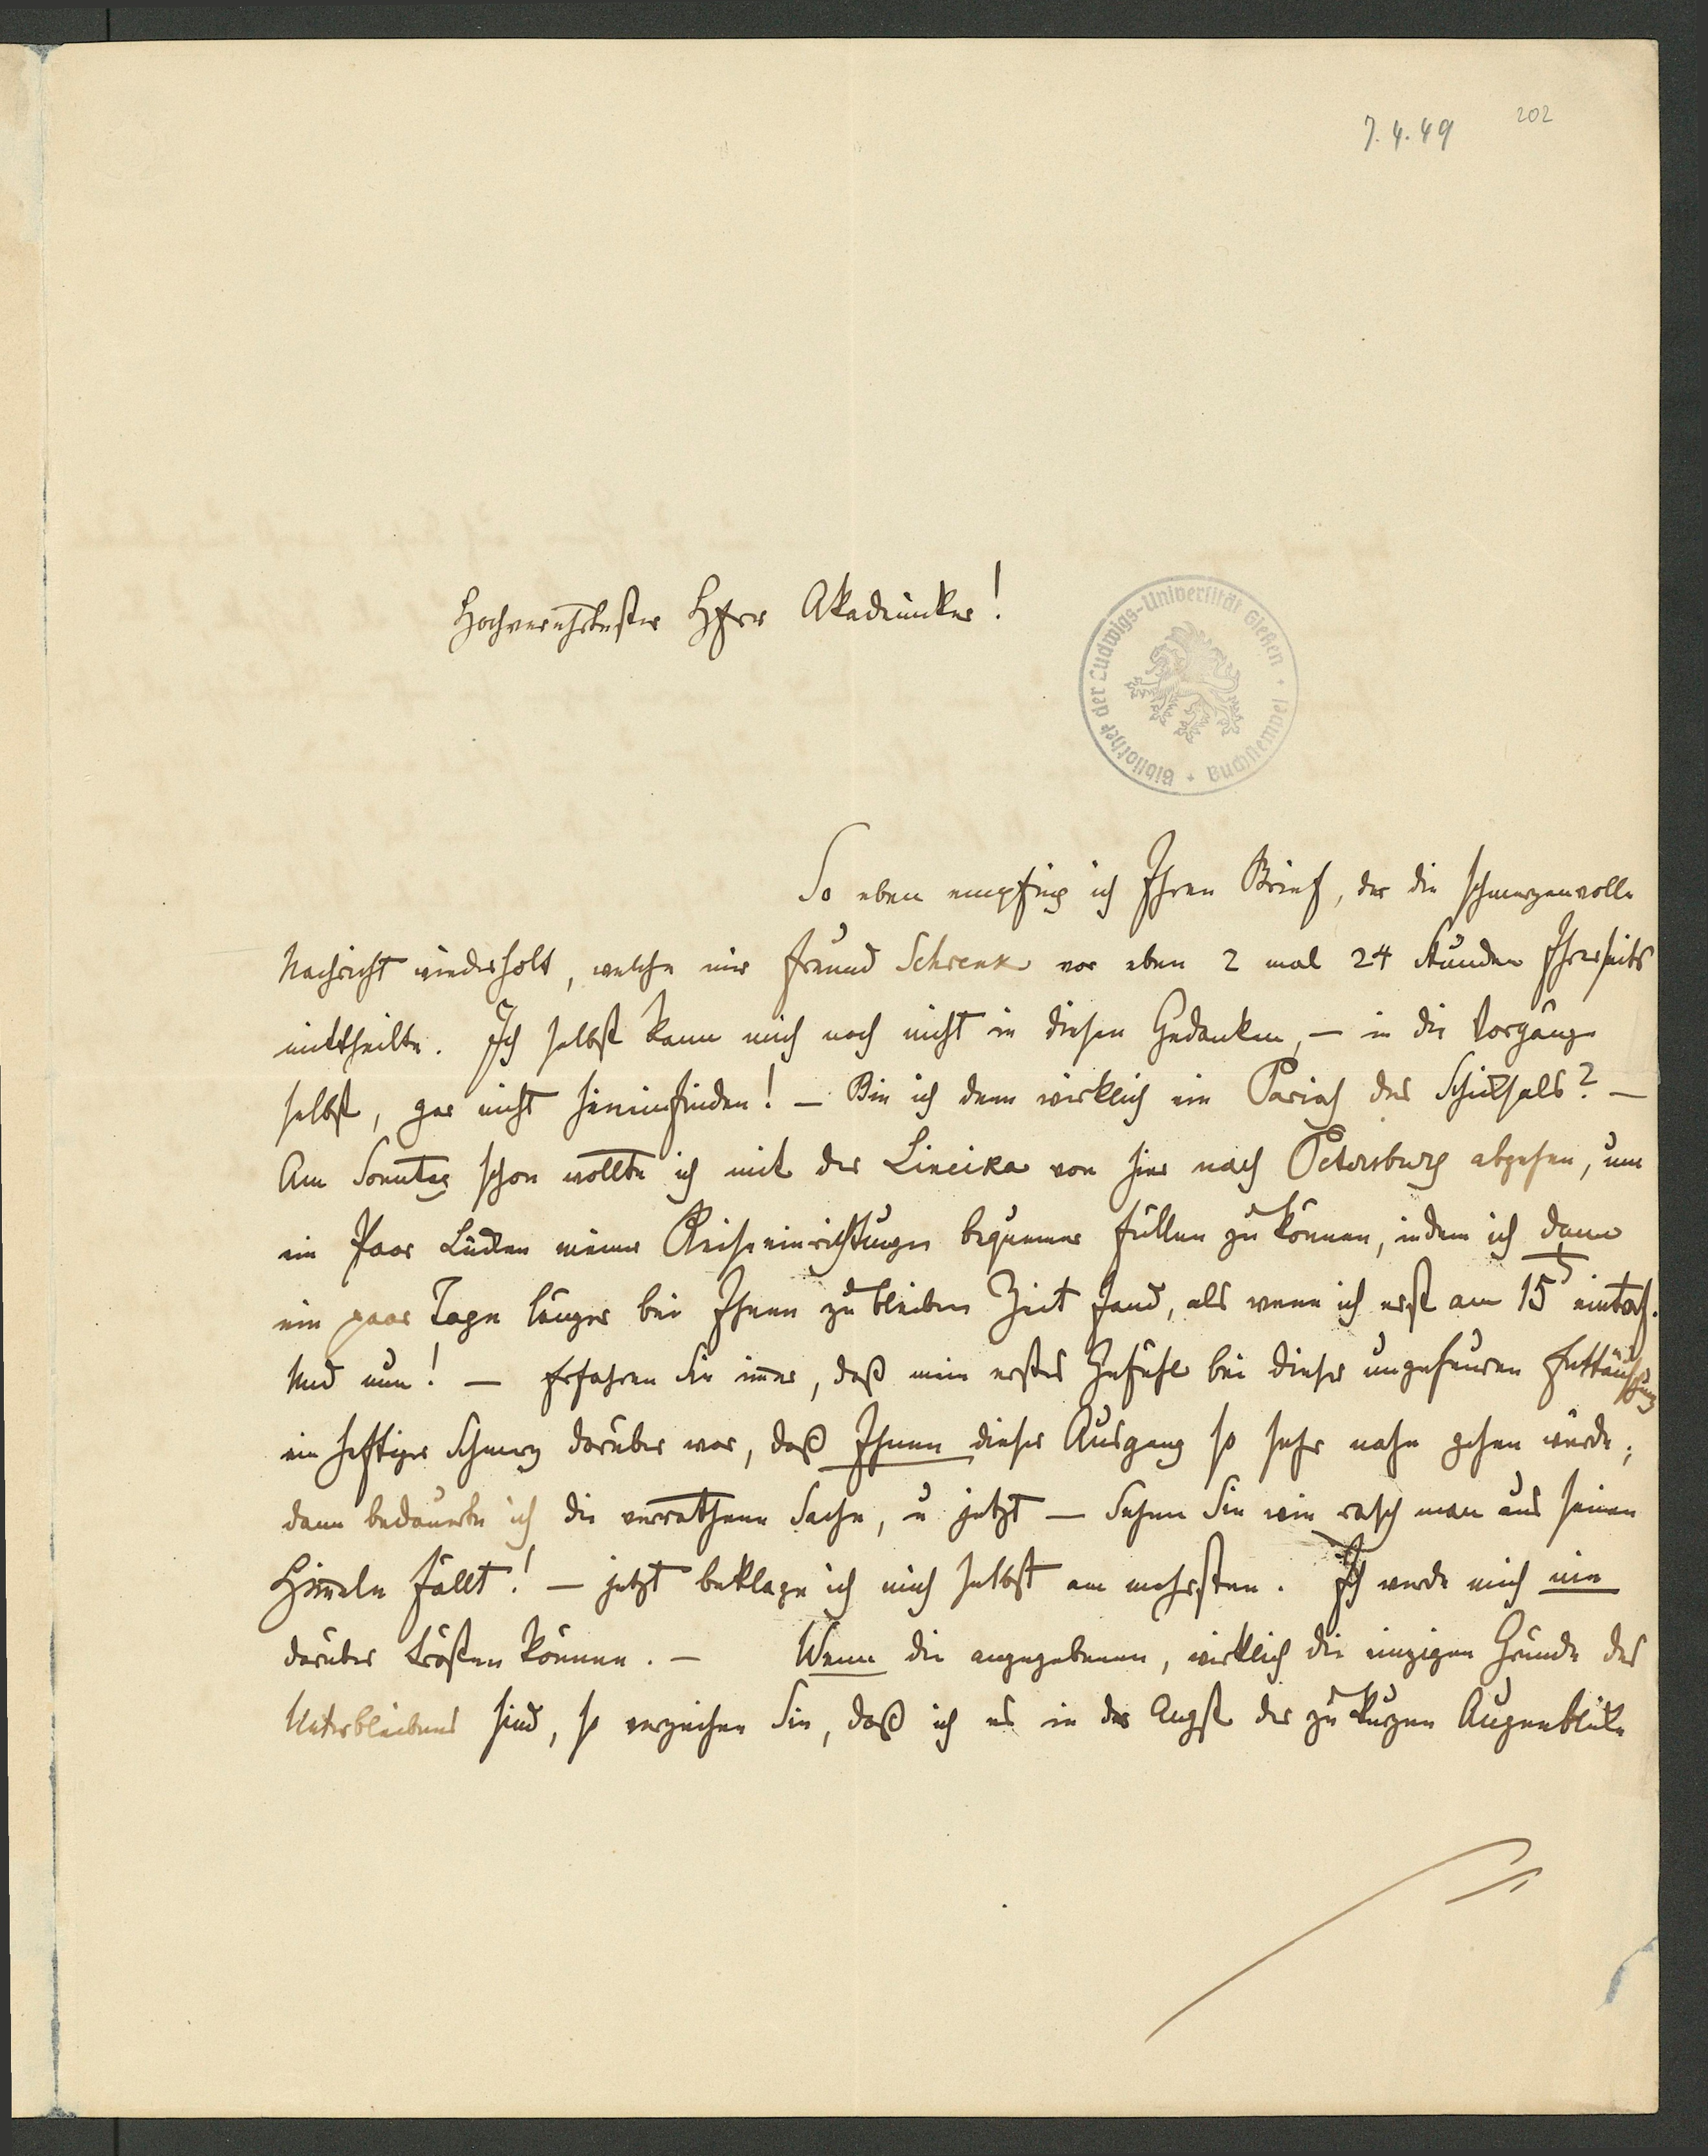 7.4.49 202
Hochverehrtester Herr Akademiker!
Bibliothek der Ludwigs-Universität Gießen + Buchstempel +
So eben empfing ich Ihren Brief, der die schmerzenvolle
Nachricht wiederholt, welche mir Freund Schrenk vor eben 2 mal 24 Stunden Ihrerseits
mittheilte. Ich selbst kann mich noch nicht in diesen Gedanken, — in die Vorgänge
selbst, gar nicht hineinfinden! — Bin ich denn wirklich ein Pariah des Schicksals? —
Am Sonntag schon wollte ich mit der Lineika von hier nach Petersburg abgehen, um
ein Paar Lücken meiner Reiseeinrichtungen bequemer füllen zu können, indem ich dann
ein paar Tage länger bei Ihnen zu bleiben Zeit fand, als wenn ich erst am 15 eintraf.
Und nun! — Erfahren Sie immer, daß mein erstes Gefühl bei dieser ungeheuren Enttäuschung
ein heftiger Schmerz darüber war, daß Ihnen dieser Ausgang so sehr nahe gehen würde;
dann bedauerte ich die verrathene Sache, u jetzt — Sehen Sie wie rasch man aus seinen
Himmeln fällt! — jetzt beklage ich mich selbst am mehrsten. Ich werde mich nie
darüber trösten können. — Wenn die angegebenen, wirklich die einzigen Gründe des
Unterbleibens sind, so verzeihen Sie, daß ich es in der Angst der zu kurzen Augenblicke